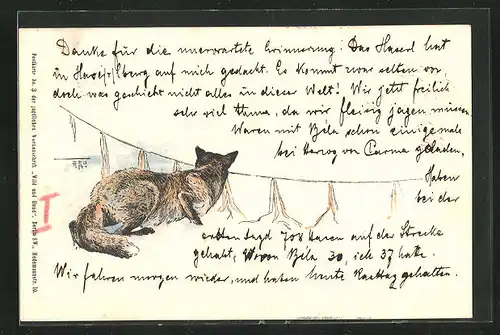 Danke für die unerwartete Erinnerung! Das Haserl hat
in auf mich gedacht. Es kommt zwar selten vor,
doch was geschieht nicht alles in dieser Welt! Wir jetzt freilich
sehr viel thun, da wir fleißig jagen müssen.
Waren mit Béla schon einigemale
bei Herzog von Parma geladen,
Haben
bei der
ersten Jagd 708 Hasen auf der Strecke
gehabt, Wovon Béla 30, ich 37 hatte.
Wir fahren morgen wieder, und haben heute Rasttag gehalten.
Postkarte No. 3 der jagdlichen Vereinsschrift „Wild und Hund", Berlin SW., Hedemannstr. 10.